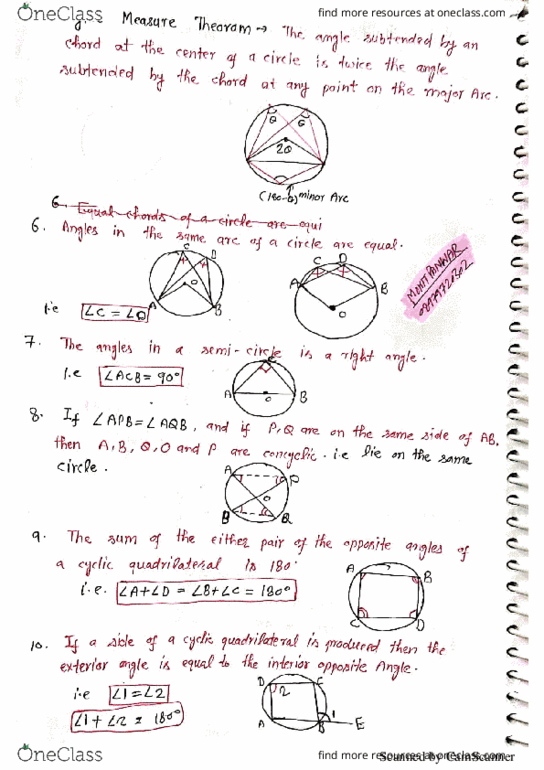 OneClass
find more resources at oneclass.com
Measure Theoram → The angle subtended by an
chord at the center of a circle is twice the angle
subtended by the chord at any point on the major Arc.
θ θ
2θ
minor Arc
6. Equal chords of a circle are equi
6. Angles in the same arc of a circle are equal.
C D
O
A B
C D
A B
O
MOHIT PANWAR
i.e ∠C = ∠D
7. The angles in a semi-circle is a right angle.
i.e ∠ACB = 90°
C
A O B
8. If ∠APB = ∠AQB, and if P,Q are on the same side of AB,
then A,B,Q,O and P are concyclic. i.e lie on the same
circle.
A P
O
B Q
9. The sum of the either pair of the opposite angles of
a cyclic quadrilateral is 180°
i.e. ∠A+∠D = ∠B+∠C = 180°
A B
C D
10. If a side of a cyclic quadrilateral is produced then the
exterior angle is equal to the interior opposite Angle.
i.e ∠1 = ∠2
∠1 + ∠2 = 180°
D C
2
A B 1 E
OneClass
find more resources at oneclass.com
Scanned by CamScanner